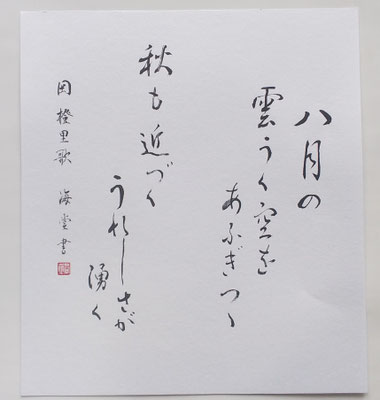 八月の
雲うく空を
あふぎつゝ
秋も近づく
うれしさが
湧く
岡橙里歌 海堂書